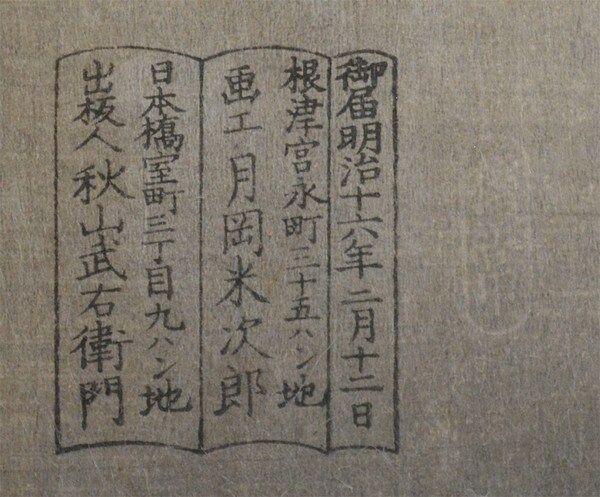 御届明治十六年二月十二日
根津宮永町三十五ハン地
画工 月岡米次郎
日本橋室町三丁目九ハン地
出板人 秋山武右衛門